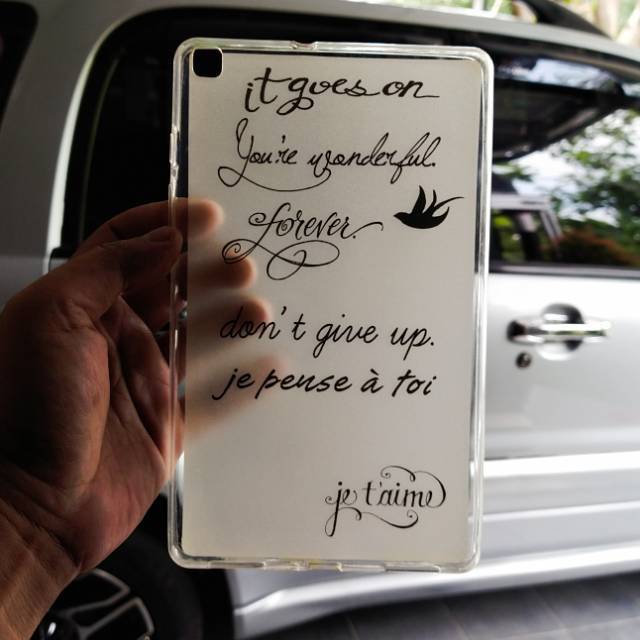 it goes on
You're wonderful.
forever.
don't give up.
je pense à toi
je t'aime